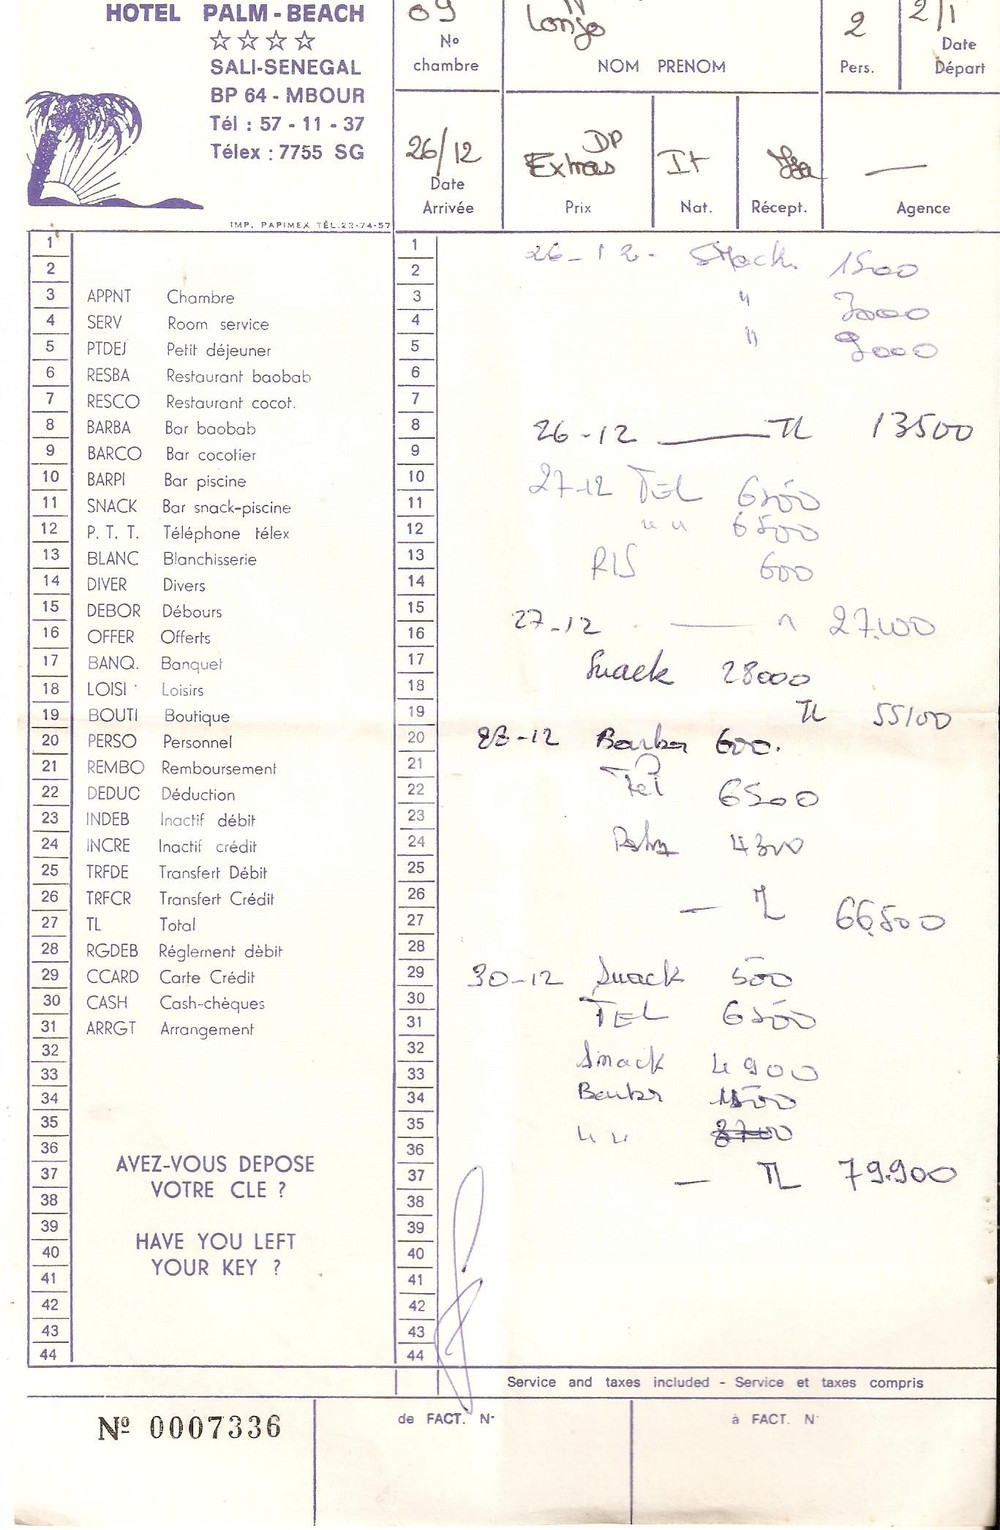 HOTEL PALM-BEACH
SALI-SENEGAL
BP 64 - MBOUR
Tél : 57 - 11 - 37
Télex : 7755 SG
IMP. PAPIMEX TÉL. 23-74-57
09
N° chambre
Longo
NOM PRENOM
2
Pers.
2/1
Date Départ
26/12
Date Arrivée
DP
Extras
Prix
It
Nat.
Récept.
—
Agence
1
2
3 APPNT Chambre
4 SERV Room service
5 PTDEJ Petit déjeuner
6 RESBA Restaurant baobab
7 RESCO Restaurant cocot.
8 BARBA Bar baobab
9 BARCO Bar cocotier
10 BARPI Bar piscine
11 SNACK Bar snack-piscine
12 P. T. T. Téléphone télex
13 BLANC Blanchisserie
14 DIVER Divers
15 DEBOR Débours
16 OFFER Offerts
17 BANQ. Banquet
18 LOISI Loisirs
19 BOUTI Boutique
20 PERSO Personnel
21 REMBO Remboursement
22 DEDUC Déduction
23 INDEB Inactif débit
24 INCRE Inactif crédit
25 TRFDE Transfert Débit
26 TRFCR Transfert Crédit
27 TL Total
28 RGDEB Réglement débit
29 CCARD Carte Crédit
30 CASH Cash-chèques
31 ARRGT Arrangement
32
33
34
35
36
37
38
39
40
41
42
43
44
AVEZ-VOUS DEPOSE
VOTRE CLE ?
HAVE YOU LEFT
YOUR KEY ?
1
2
3
4
5
6
7
8
9
10
11
12
13
14
15
16
17
18
19
20
21
22
23
24
25
26
27
28
29
30
31
32
33
34
35
36
37
38
39
40
41
42
43
44
26-12- Snack. 1500
" 3000
" 9000
26-12 — TL 13500
27-12 TEL 6500
" " 6500
RIS 600
27-12 — 27.100
Snack 28000
TL 55100
28-12 Barba 600.
Tel 6500
4300
— TL 66.500
30-12 Snack 500
TEL 6500
Snack 4900
Barba 1500
" " 3700
— TL 79.900
Service and taxes included - Service et taxes compris
Nº 0007336
de FACT. N°
à FACT. N°